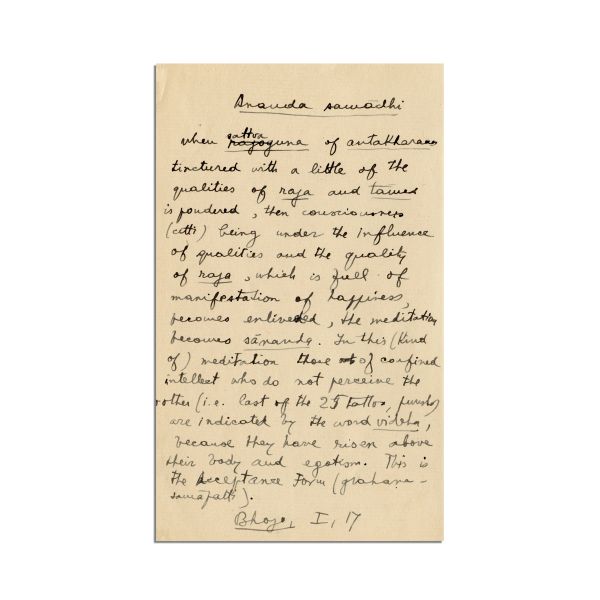 Ananda samādhi
when sattva rajoguna of antakharana
tinctured with a little of the
qualities of raja and tamas
is pondered, then consciousness
(citti) being under the influence
of qualities and the quality
of raja, which is full of
manifestation of happiness,
becomes enlivened, the meditation
becomes sānanda. In this (kind
of) meditation those of confined
intellect who do not perceive the
other (i.e. last of the 25 tattvas, purusha)
are indicated by the word videha,
because they have risen above
their body and egotism. This is
the Acceptance Form (grahana-
samāpatti).
Bhoja, I, 17